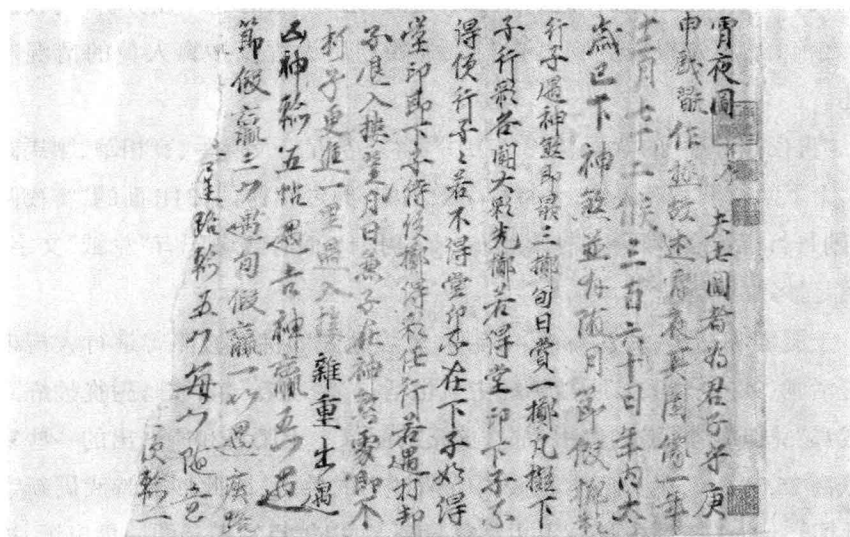 宵夜圖 夫圖者為君子乎庚
申戲翫作極故述霄夜其圖像一年
十二月七十二候三百六十日年内太
歲已下神煞並有隨月節假擲彩
行子遇神煞即罰三擲旬日賞一擲凡擬下
子行彩各開大彩先擲若得堂印下子不
得便行子々若不得堂印不在下子如得
堂印即下子待後擲得彩任行若遇打却
子退入換月日兼子在神煞處即不
打子更進一里入換 雜重出遇
凶神輸五帖遇吉神贏五々遇
節假贏三々遇旬假贏一々遇廣路
達路輸五々每々隨意
須輸一